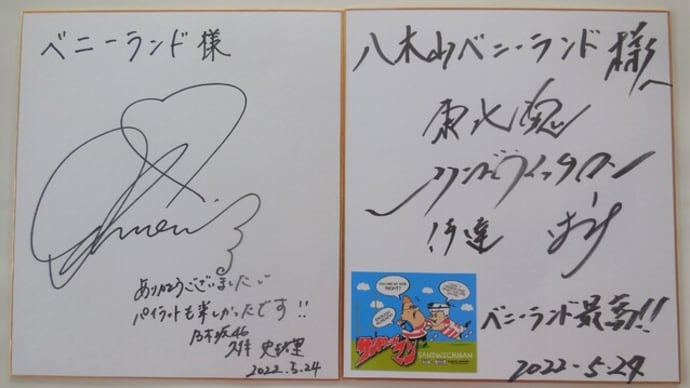 ベニーランド様
ありがとうございました
パイラットも楽しかったです!!
乃木坂46
久保 史緒里
2022.5.24
八木山ベニーランド様へ
東北魂
サンドウィッチマン
伊達 みきお
ベニーランド最高!!
2022.5.24
サンドウィッチマン
SANDWICHMAN